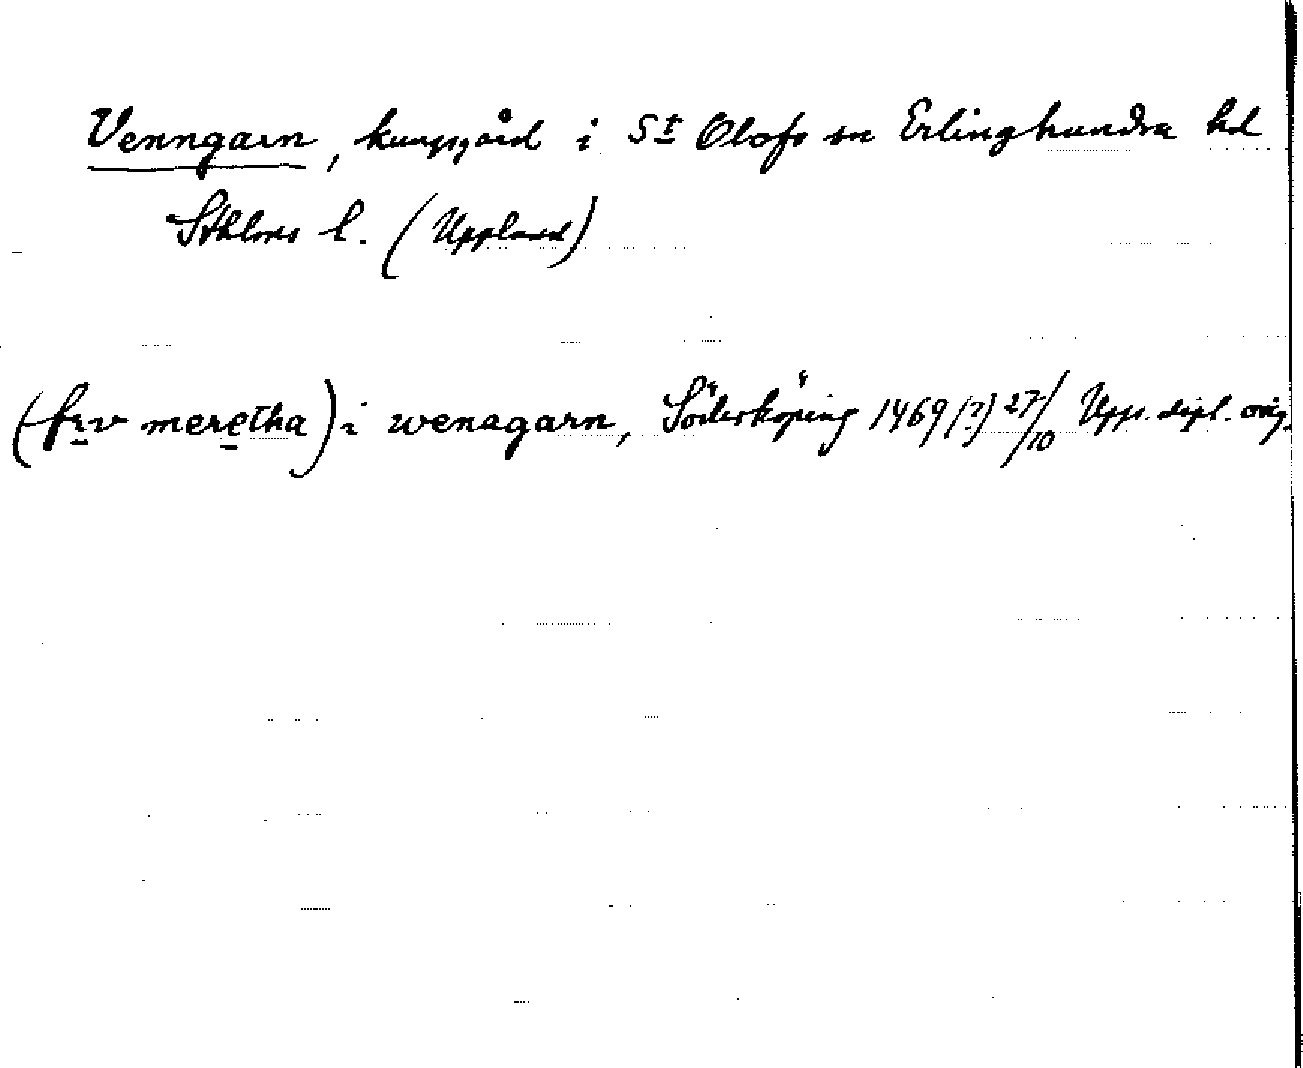 Venngarn, kungsgård i St Olofs sn Erlinghundra hd
Sthlms l. (Uppland)
(frv meretha) i wenagarn, Söderköping 1469 (?) 27/10 Upps. dipl. orig.